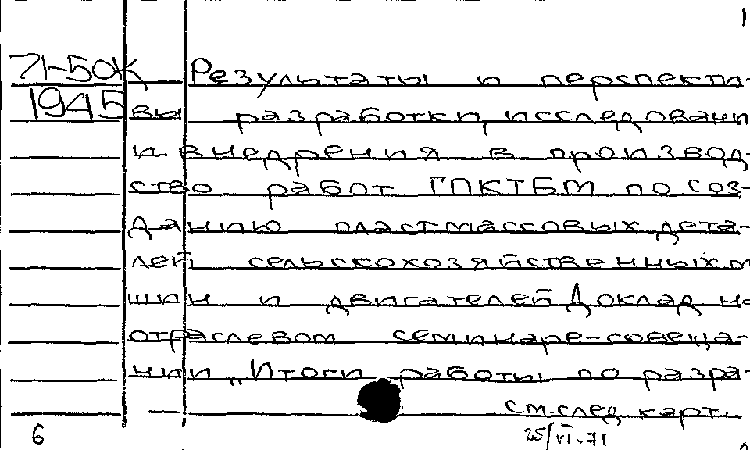 1
71-50к Результаты и перспекти-
1945 вы разработки, исследовани
и внедрения в производ-
ство работ ГПКТБМ по соз-
данию пластмассовых дета-
лей сельскохозяйственных м
шин и двигателей Доклад н
отраслевом семинаре-совеща-
нии „Итоги работы по разра-
см.след.карт.
6 25/VI-71